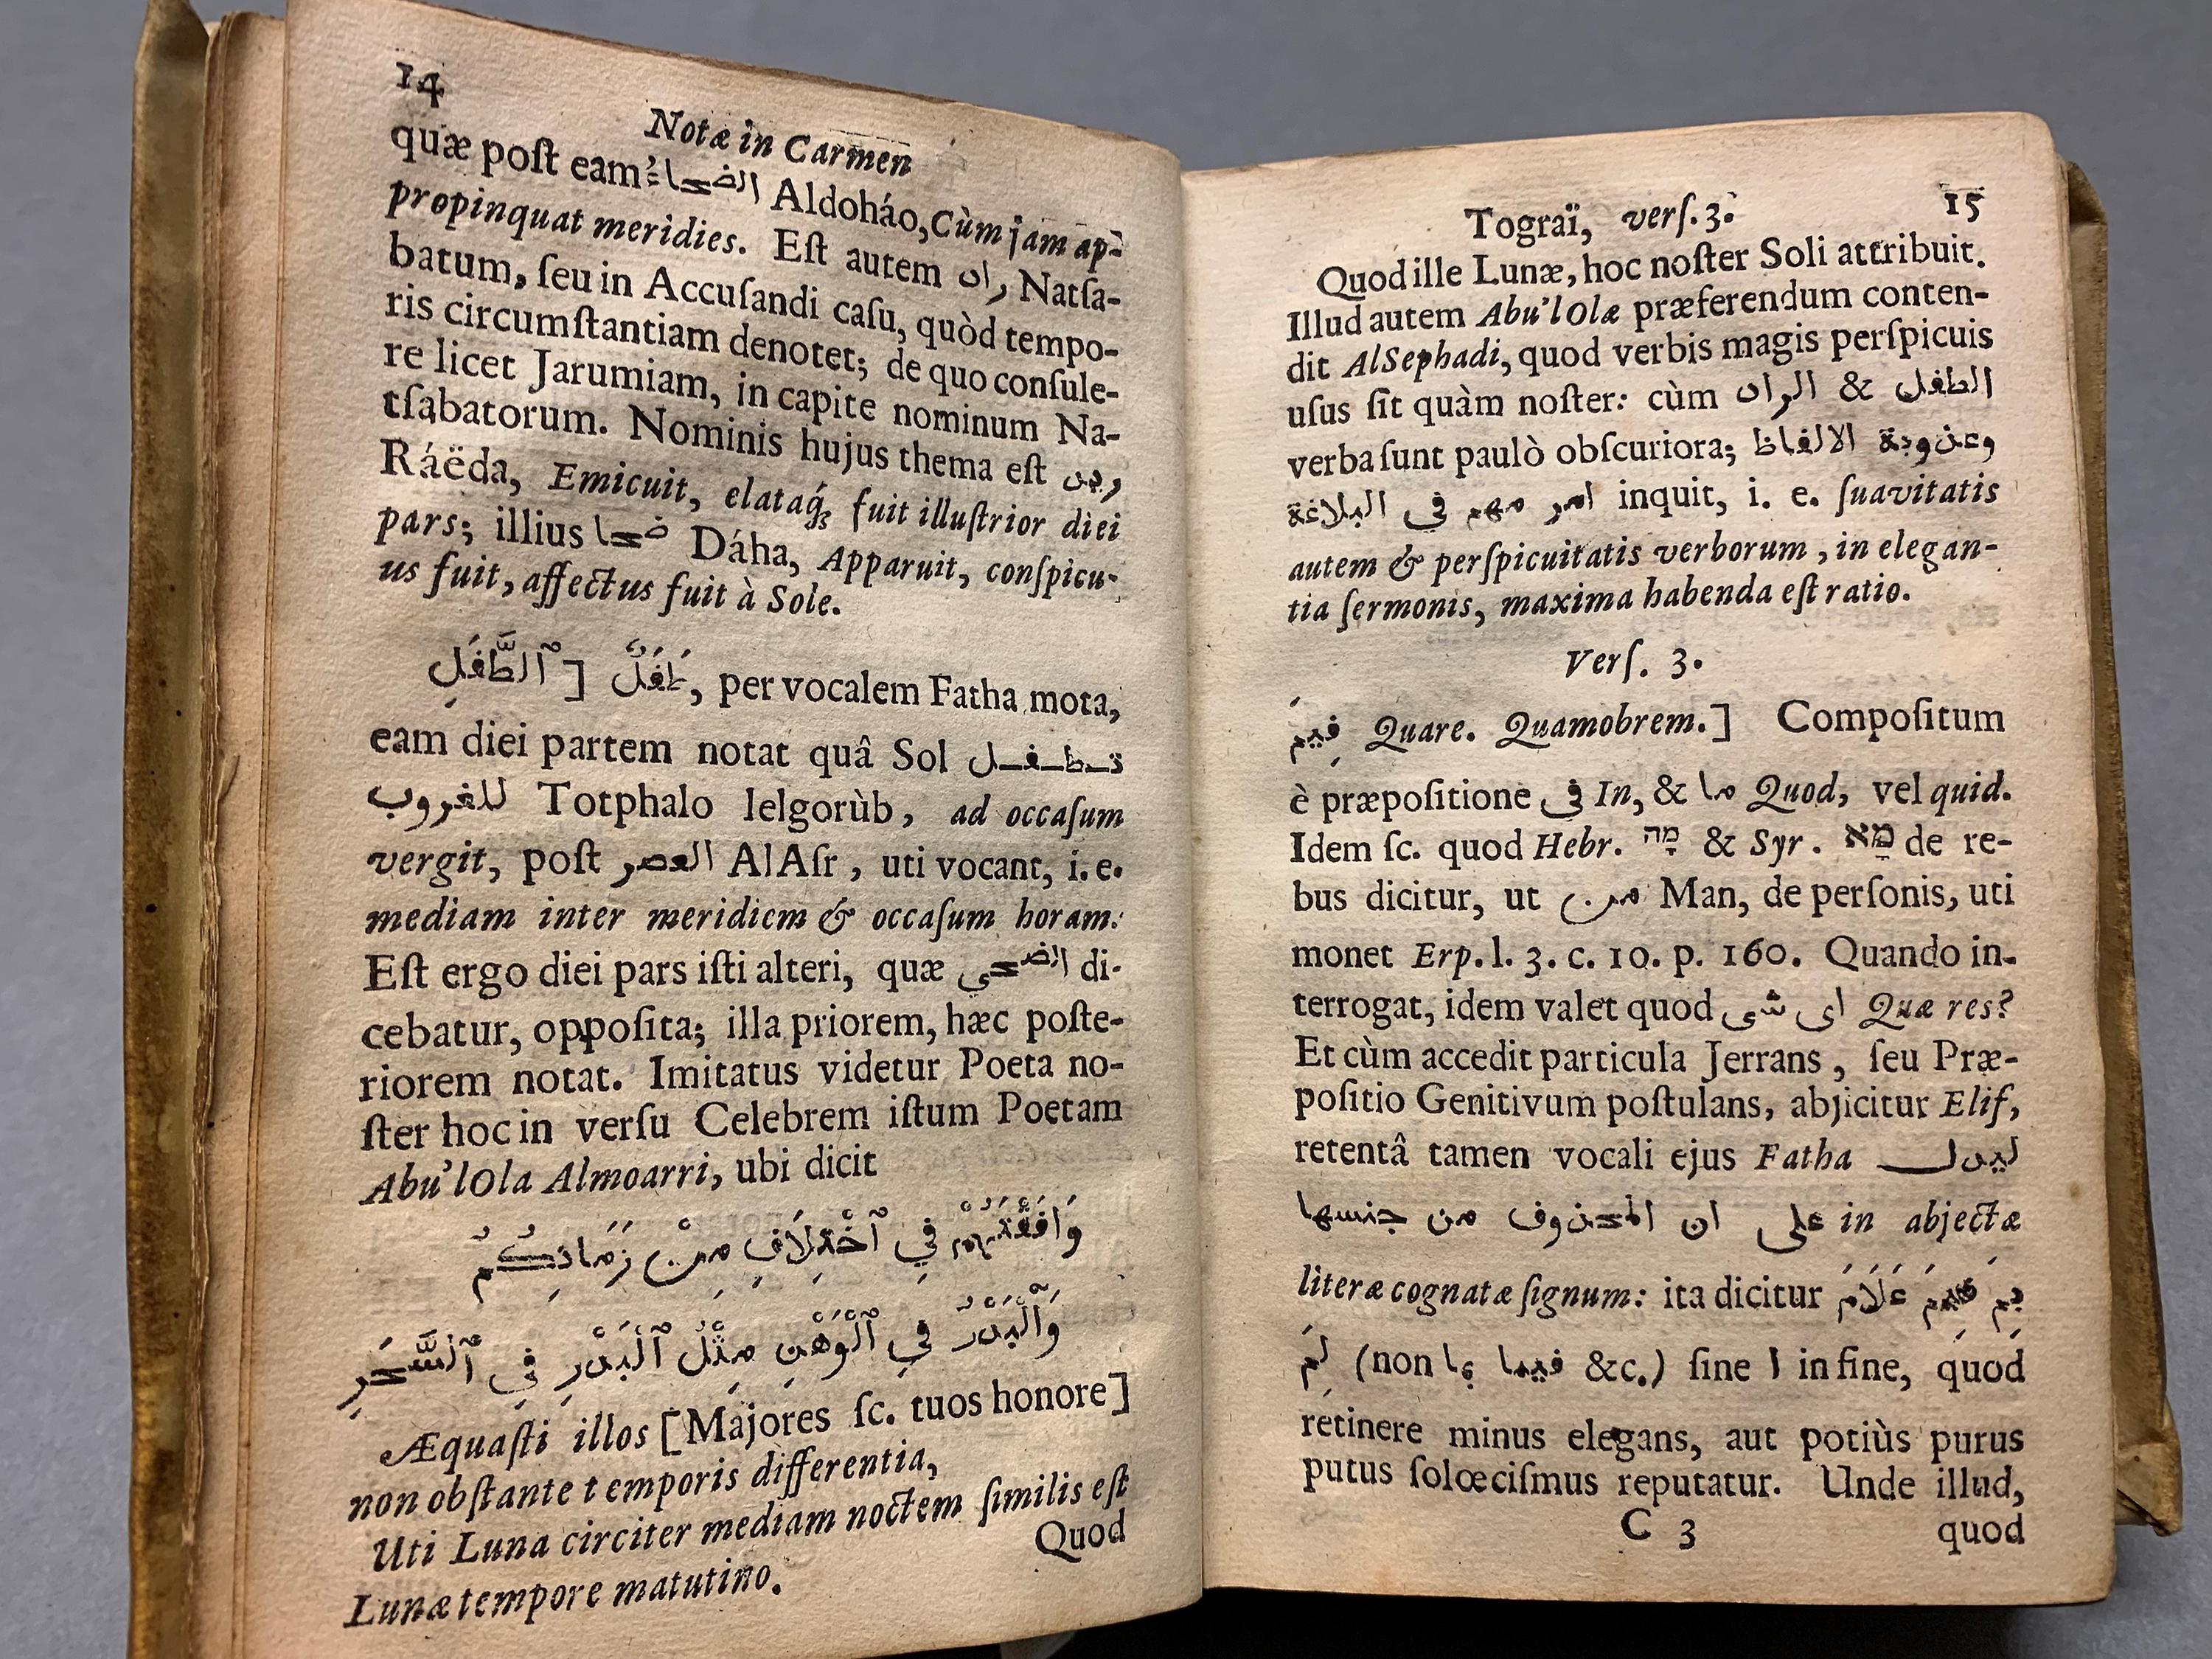 14
Notæ in Carmen
quæ poſt eam الضحاء Aldoháo, Cùm jam ap-
propinquat meridies. Eſt autem راد Natſa-
batum, ſeu in Accuſandi caſu, quòd tempo-
ris circumſtantiam denotet; de quo conſule-
re licet Jarumiam, in capite nominum Na-
tſabatorum. Nominis hujus thema eſt ريد
Ráëda, Emicuit, elataq́; fuit illuſtrior diei
pars; illius ضحا Dáha, Apparuit, conſpicu-
us fuit, affectus fuit à Sole.
ٱلطَّفَلِ ] طَفَلٌ, per vocalem Fatha mota,
eam diei partem notat quâ Sol تـطـفـل
للغروب Totphalo lelgorùb, ad occaſum
vergit, poſt العصر AlAſr, uti vocant, i. e.
mediam inter meridiem & occaſum horam:
Eſt ergo diei pars iſti alteri, quæ الضحى di-
cebatur, oppoſita; illa priorem, hæc poſte-
riorem notat. Imitatus videtur Poeta no-
ſter hoc in verſu Celebrem iſtum Poetam
Abu'lOla Almoarri, ubi dicit
وَافَقْتَهُمْ فِي ٱخْتِلَافِ مِنْ زَمَانِكُمْ
وَٱلْبَدْرُ فِي ٱلْوَهْنِ مِثْلُ ٱلْبَدْرِ فِي ٱلسَّحَرِ
Æquaſti illos [Majores ſc. tuos honore]
non obſtante temporis differentia,
Uti Luna circiter mediam noctem ſimilis eſt
Lunæ tempore matutino.
Quod
Tograï, verſ. 3.
15
Quod ille Lunæ, hoc noſter Soli attribuit.
Illud autem Abu'lOlæ præferendum conten-
dit AlSephadi, quod verbis magis perſpicuis
uſus ſit quàm noſter: cùm الراد & الطفل
verba ſunt paulò obſcuriora; وعذوبة الالفاظ
امر مهم فى البلاغة inquit, i. e. ſuavitatis
autem & perſpicuitatis verborum, in elegan-
tia ſermonis, maxima habenda eſt ratio.
Verſ. 3.
فِيمَ Quare. Quamobrem.] Compoſitum
è præpoſitione فى In, & ما Quod, vel quid.
Idem ſc. quod Hebr. מָה & Syr. מָא de re-
bus dicitur, ut من Man, de perſonis, uti
monet Erp. l. 3. c. 10. p. 160. Quando in-
terrogat, idem valet quod اى شى Quæ res?
Et cùm accedit particula Jerrans, ſeu Præ-
poſitio Genitivum poſtulans, abjicitur Elif,
retentâ tamen vocali ejus Fatha ليدل
على ان المحذوف من جنسها in abjectæ
literæ cognatæ ſignum: ita dicitur بِمَ فِيمَ عَلَامَ
لِمَ (non فيما بما &c.) ſine ا in fine, quod
retinere minus elegans, aut potiùs purus
putus ſolœciſmus reputatur. Unde illud,
C 3
quod